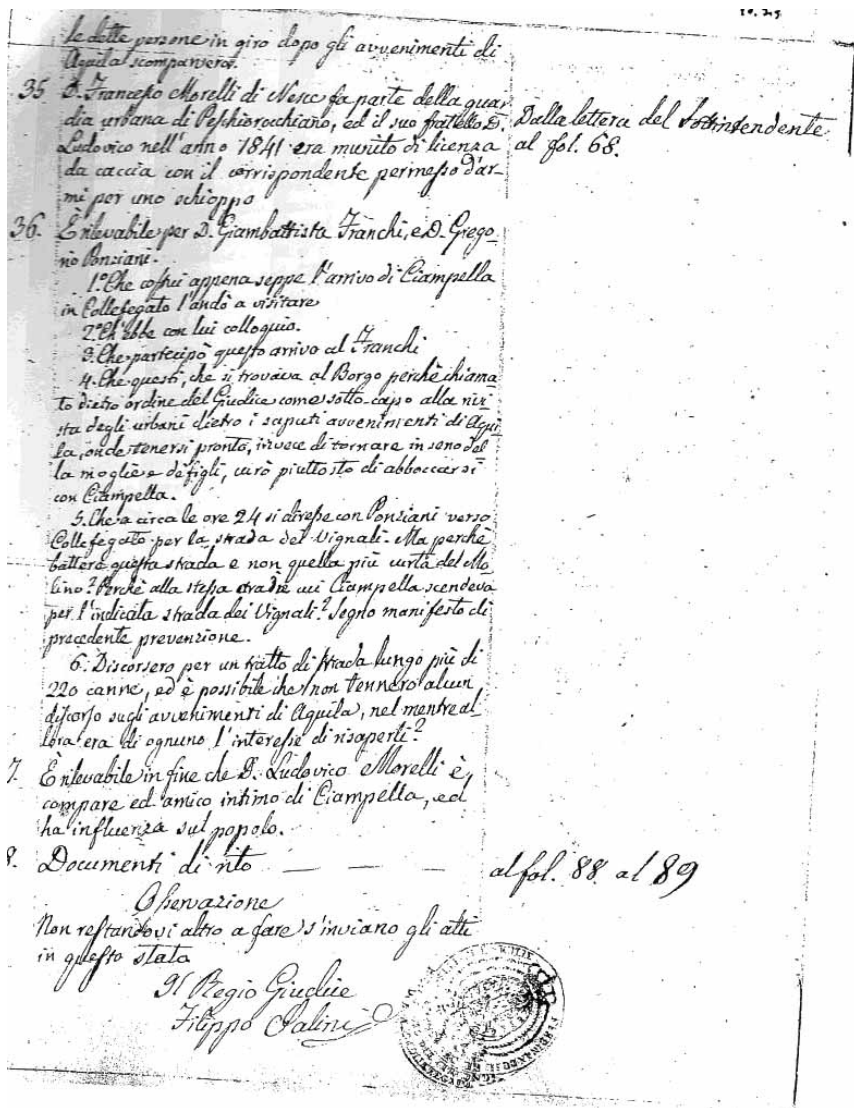 le dette persone in giro dopo gli avvenimenti di
Aquila scomparvero.
35 D. Francesco Morelli di Nesce fa parte della guar-
dia urbana di Peschiorocchiano, ed il suo fratello D.
Ludovico nell'anno 1841 era munito di licenza
da caccia con il corrispondente permesso d'ar-
mi per uno schioppo
Dalla lettera del Sottintendente
al fol. 68.
36. È rilevabile per D. Giambattista Franchi, e D. Grego-
rio Ponziani.
1.º Che costui appena seppe l'arrivo di Ciampella
in Collefegato l'andò a visitare
2.º Ch'ebbe con lui colloquio.
3. Che partecipò questo arrivo al Franchi
4. Che questi, che si trovava al Borgo perchè chiama-
to dietro ordine del Giudice come sotto-capo alla rivi-
sta degli urbani dietro i saputi avvenimenti di Aqui-
la, onde tenersi pronto, invece di tornare in seno del-
la moglie e de' figli, curò piuttosto di abboccarsi
con Ciampella.
5. Che a circa le ore 24 si diresse con Ponziani verso
Collefegato per la strada dei Vignali. Ma perchè
battere questa strada e non quella più curta del Mo-
lino? Perchè alla stessa ora Ciampella scendeva
per l'indicata strada dei Vignali? Segno manifesto di
precedente prevenzione.
6. Discorsero per un tratto di strada lungo più di
220 canne, ed è possibile che non tennero alcun
discorso sugli avvenimenti di Aquila, nel mentre al-
lora era di ognuno l'interesse di risaperli?
7. È rilevabile in fine che D. Ludovico Morelli è
compare ed amico intimo di Ciampella, ed
ha influenza sul popolo.
8. Documenti di rito — — — al fol. 88 al 89
Osservazione
Non restandovi altro a fare s'inviano gli atti
in questo stato
Il Regio Giudice
Filippo Salini